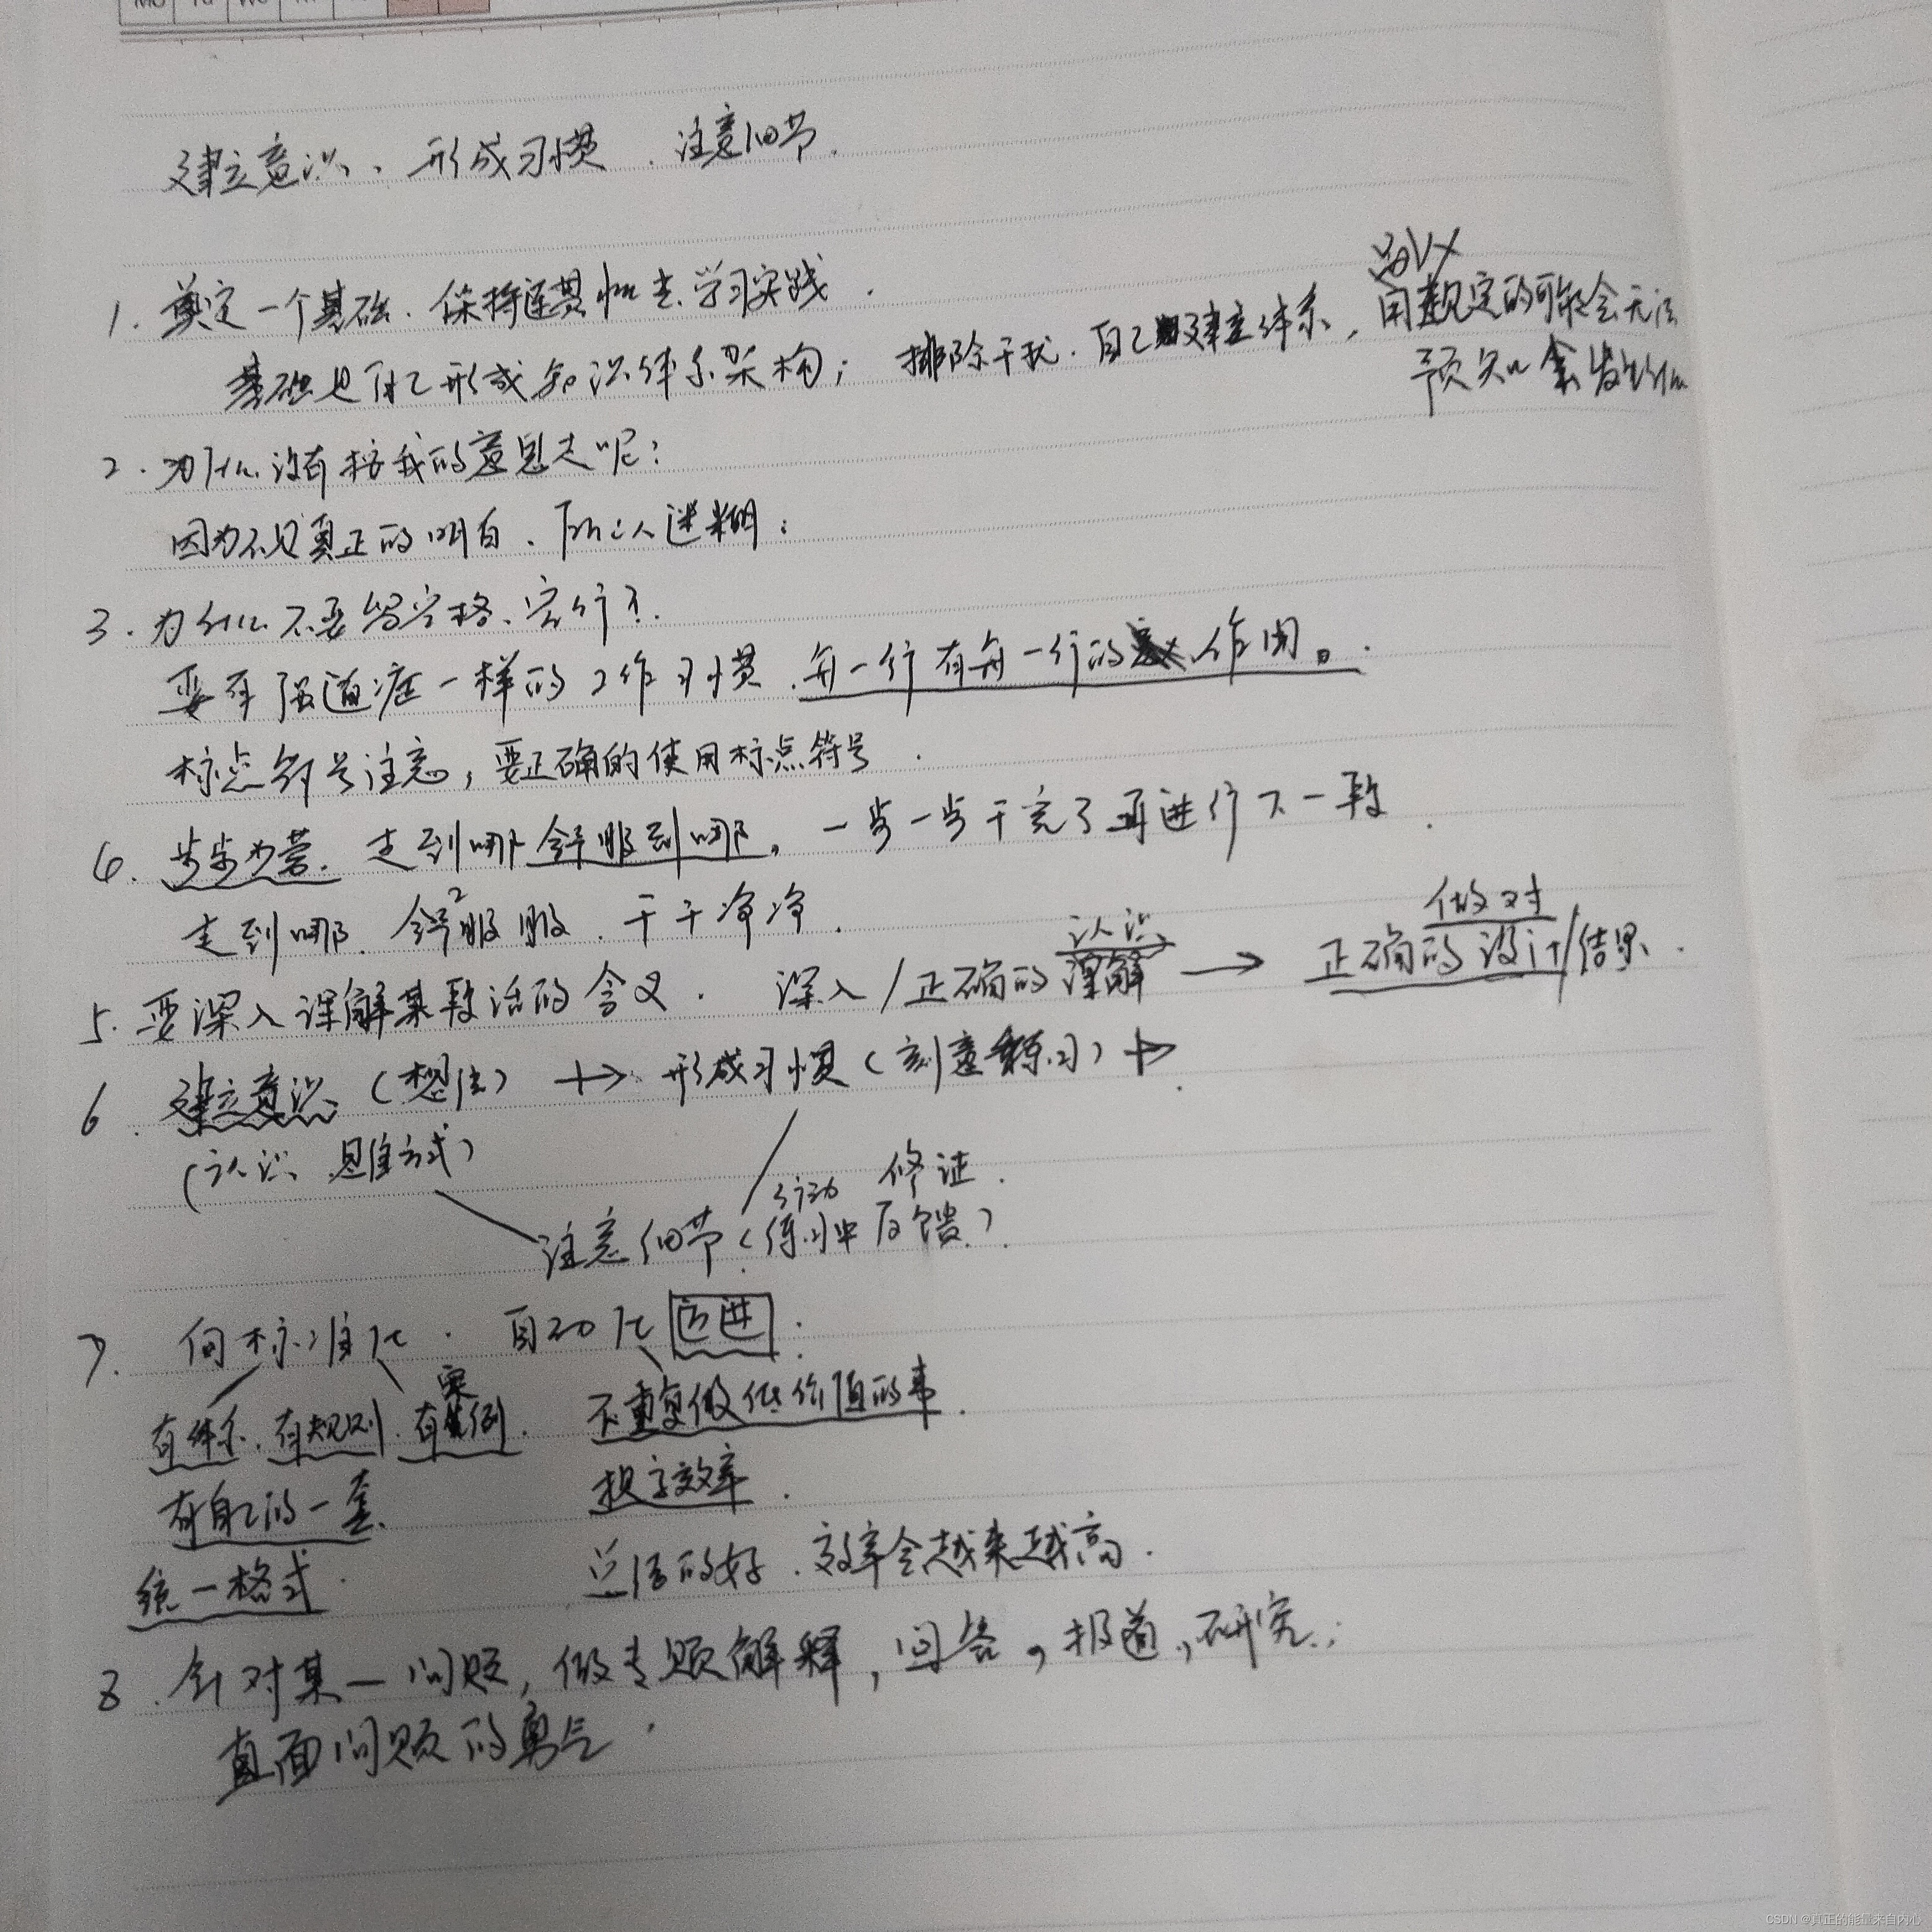 Mo Tu We
建立意识、形成习惯.注意细节.
1.奠定一个基础.保持连贯性去学习实践.
品以
基础也自己形成知识体系架构;排除干扰.自己建立体系,用规定的可能会无法
预知会发生什么
2.为什么没有按我的意思走呢?
因为不是真正的明白、所以迷糊;
3.为什么不要留空格、空行?.
要有强迫症一样的工作习惯.每一行有每一行的作用。
标点符号注意,要正确的使用标点符号.
4.步步为营.走到哪舒服到哪。一步一步干完了再进行下一段.
走到哪.舒服服.干干净净.
认识 做对
5.要深入理解某段话的含义.深入/正确的理解→正确的设计/结果.
6.建立意识(想法)→形成习惯(刻意练习)→.
(认识、思维方式)
行动 修证.
注意细节(练习中反馈).
7.向标准化.自动化迈进.
案
有体系.有规则.有例.不重复做低价值的事.
有自己的一套 提高效率.
统一格式.总结的好.效率会越来越高.
8.针对某一问题,做专题解释,回答,报道,研究;
直面问题的勇气.
CSDN @真正的能量来自内心